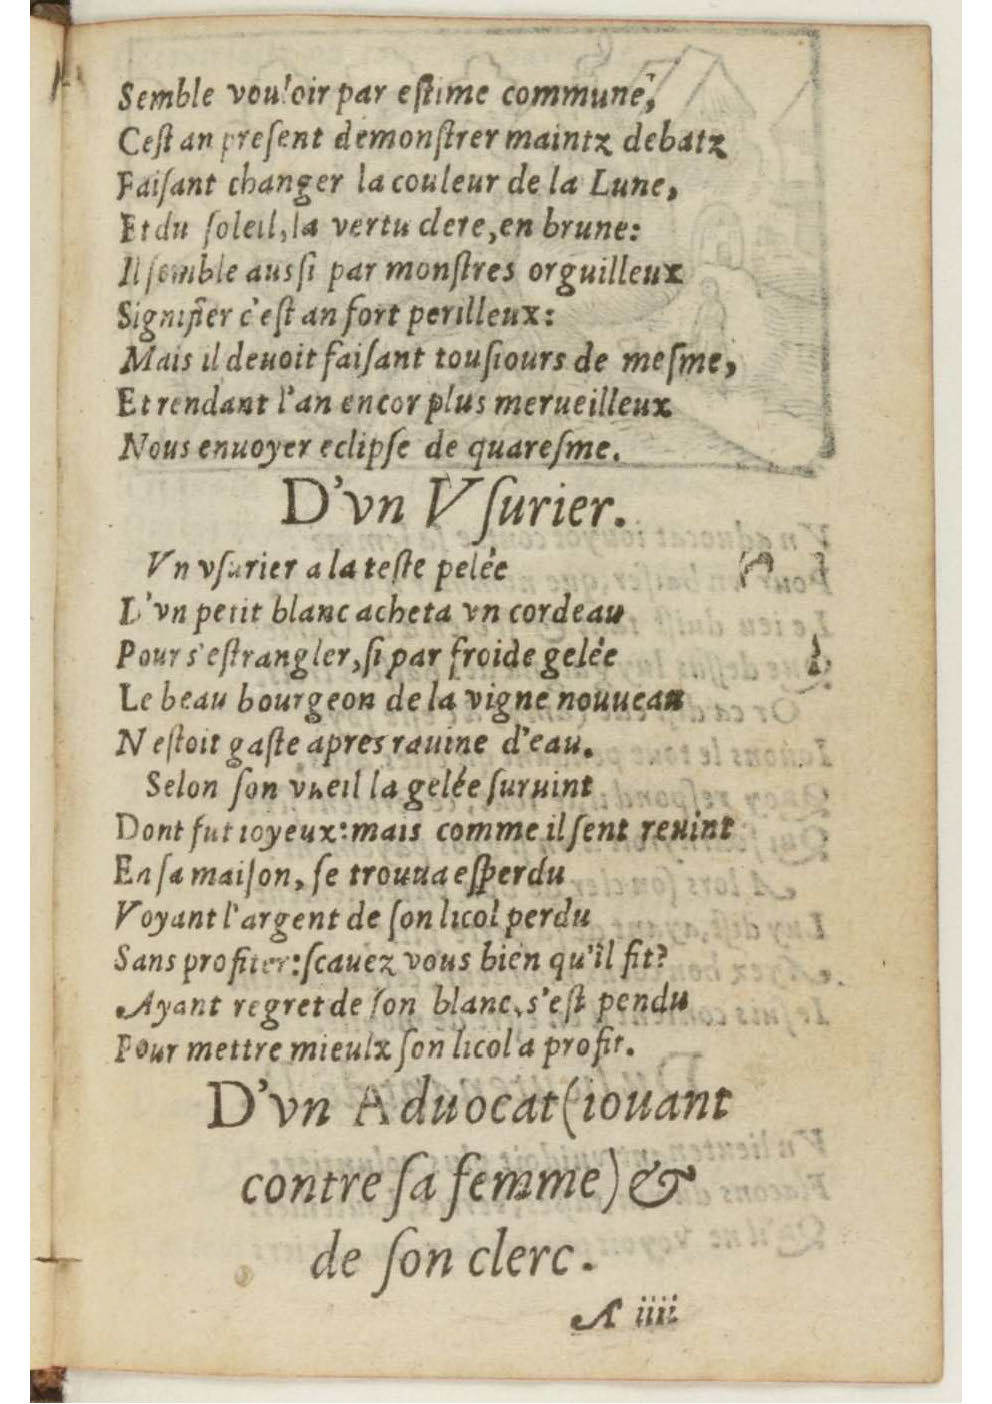 Semble vouloir par eſtime commune,
Ceſt an preſent demonſtrer maintz debatz
Faiſant changer la couleur de la Lune,
Et du ſoleil, la vertu clere, en brune:
Il ſemble auſſi par monſtres orguilleux
Signifier c'eſt an fort perilleux:
Mais il deuoit faiſant touſiours de meſme,
Et rendant l'an encor plus merueilleux
Nous enuoyer eclipſe de quareſme.
D'vn Vſurier.
Vn vſurier a la teſte pelée
D'vn petit blanc acheta vn cordeau
Pour s'eſtrangler, ſi par froide gelée
Le beau bourgeon de la vigne nouueau
N'eſtoit gaſte apres rauine d'eau.
Selon ſon vueil la gelée ſuruint
Dont fut ioyeux: mais comme il ſent reuint
En ſa maiſon, ſe trouua eſperdu
Voyant l'argent de ſon licol perdu
Sans profiter: ſcauez vous bien qu'il fit?
Ayant regret de ſon blanc, s'eſt pendu
Pour mettre mieulx ſon licol a profit.
D'vn Aduocat (iouant
contre ſa femme) &
de ſon clerc.
A iiii